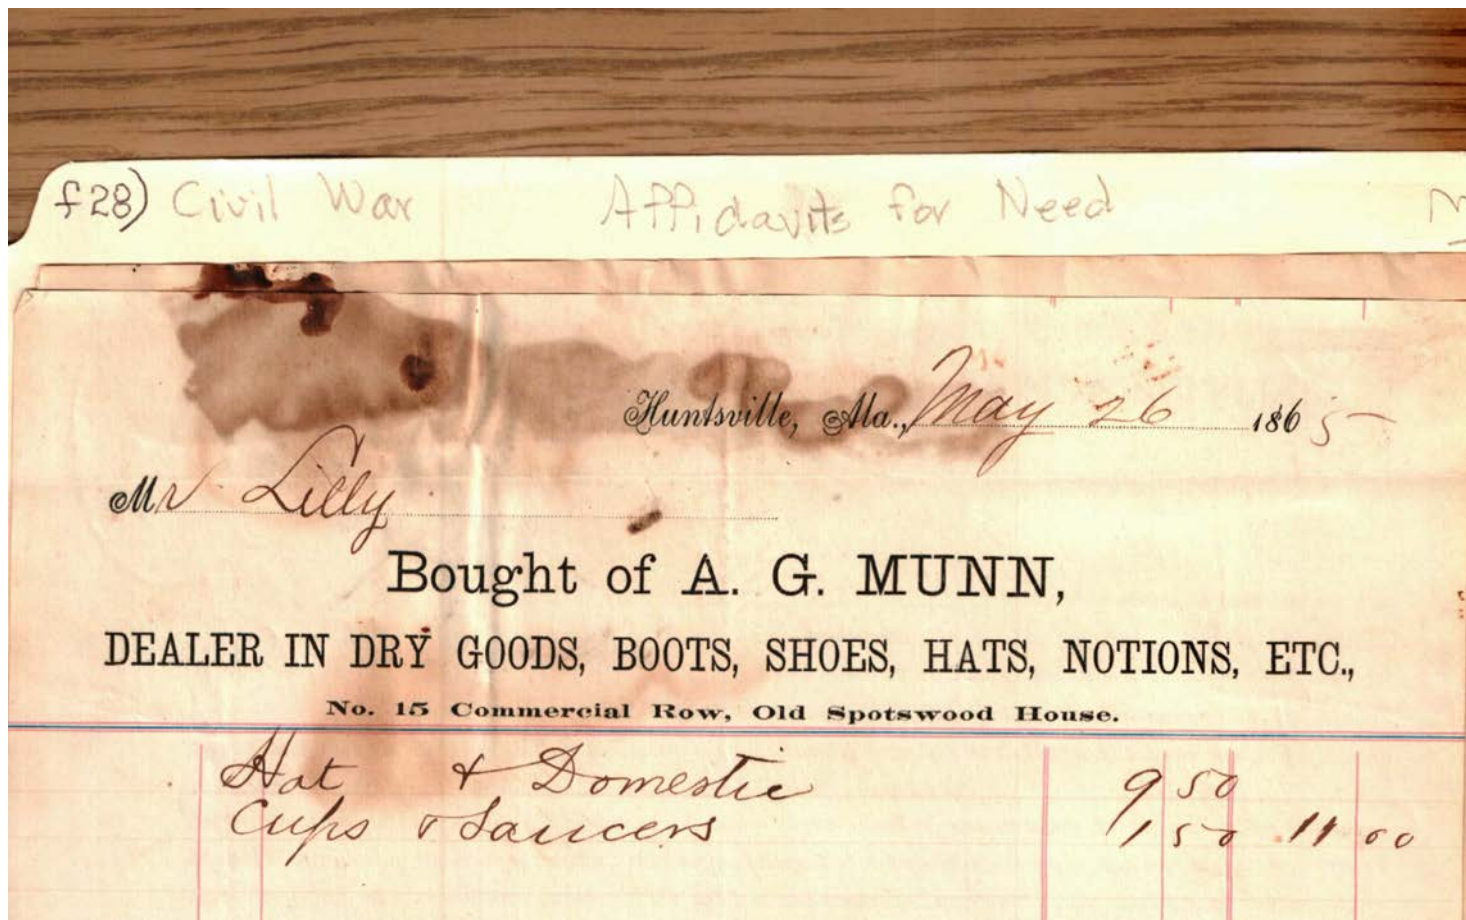 f28) Civil War Affidavits for Need
Huntsville, Ala., May 26 1865
Mr Lilly
Bought of A. G. MUNN,
DEALER IN DRY GOODS, BOOTS, SHOES, HATS, NOTIONS, ETC.,
No. 15 Commercial Row, Old Spotswood House.
Hat & Domestic 9 50
Cups & Saucers 1 50 11 00